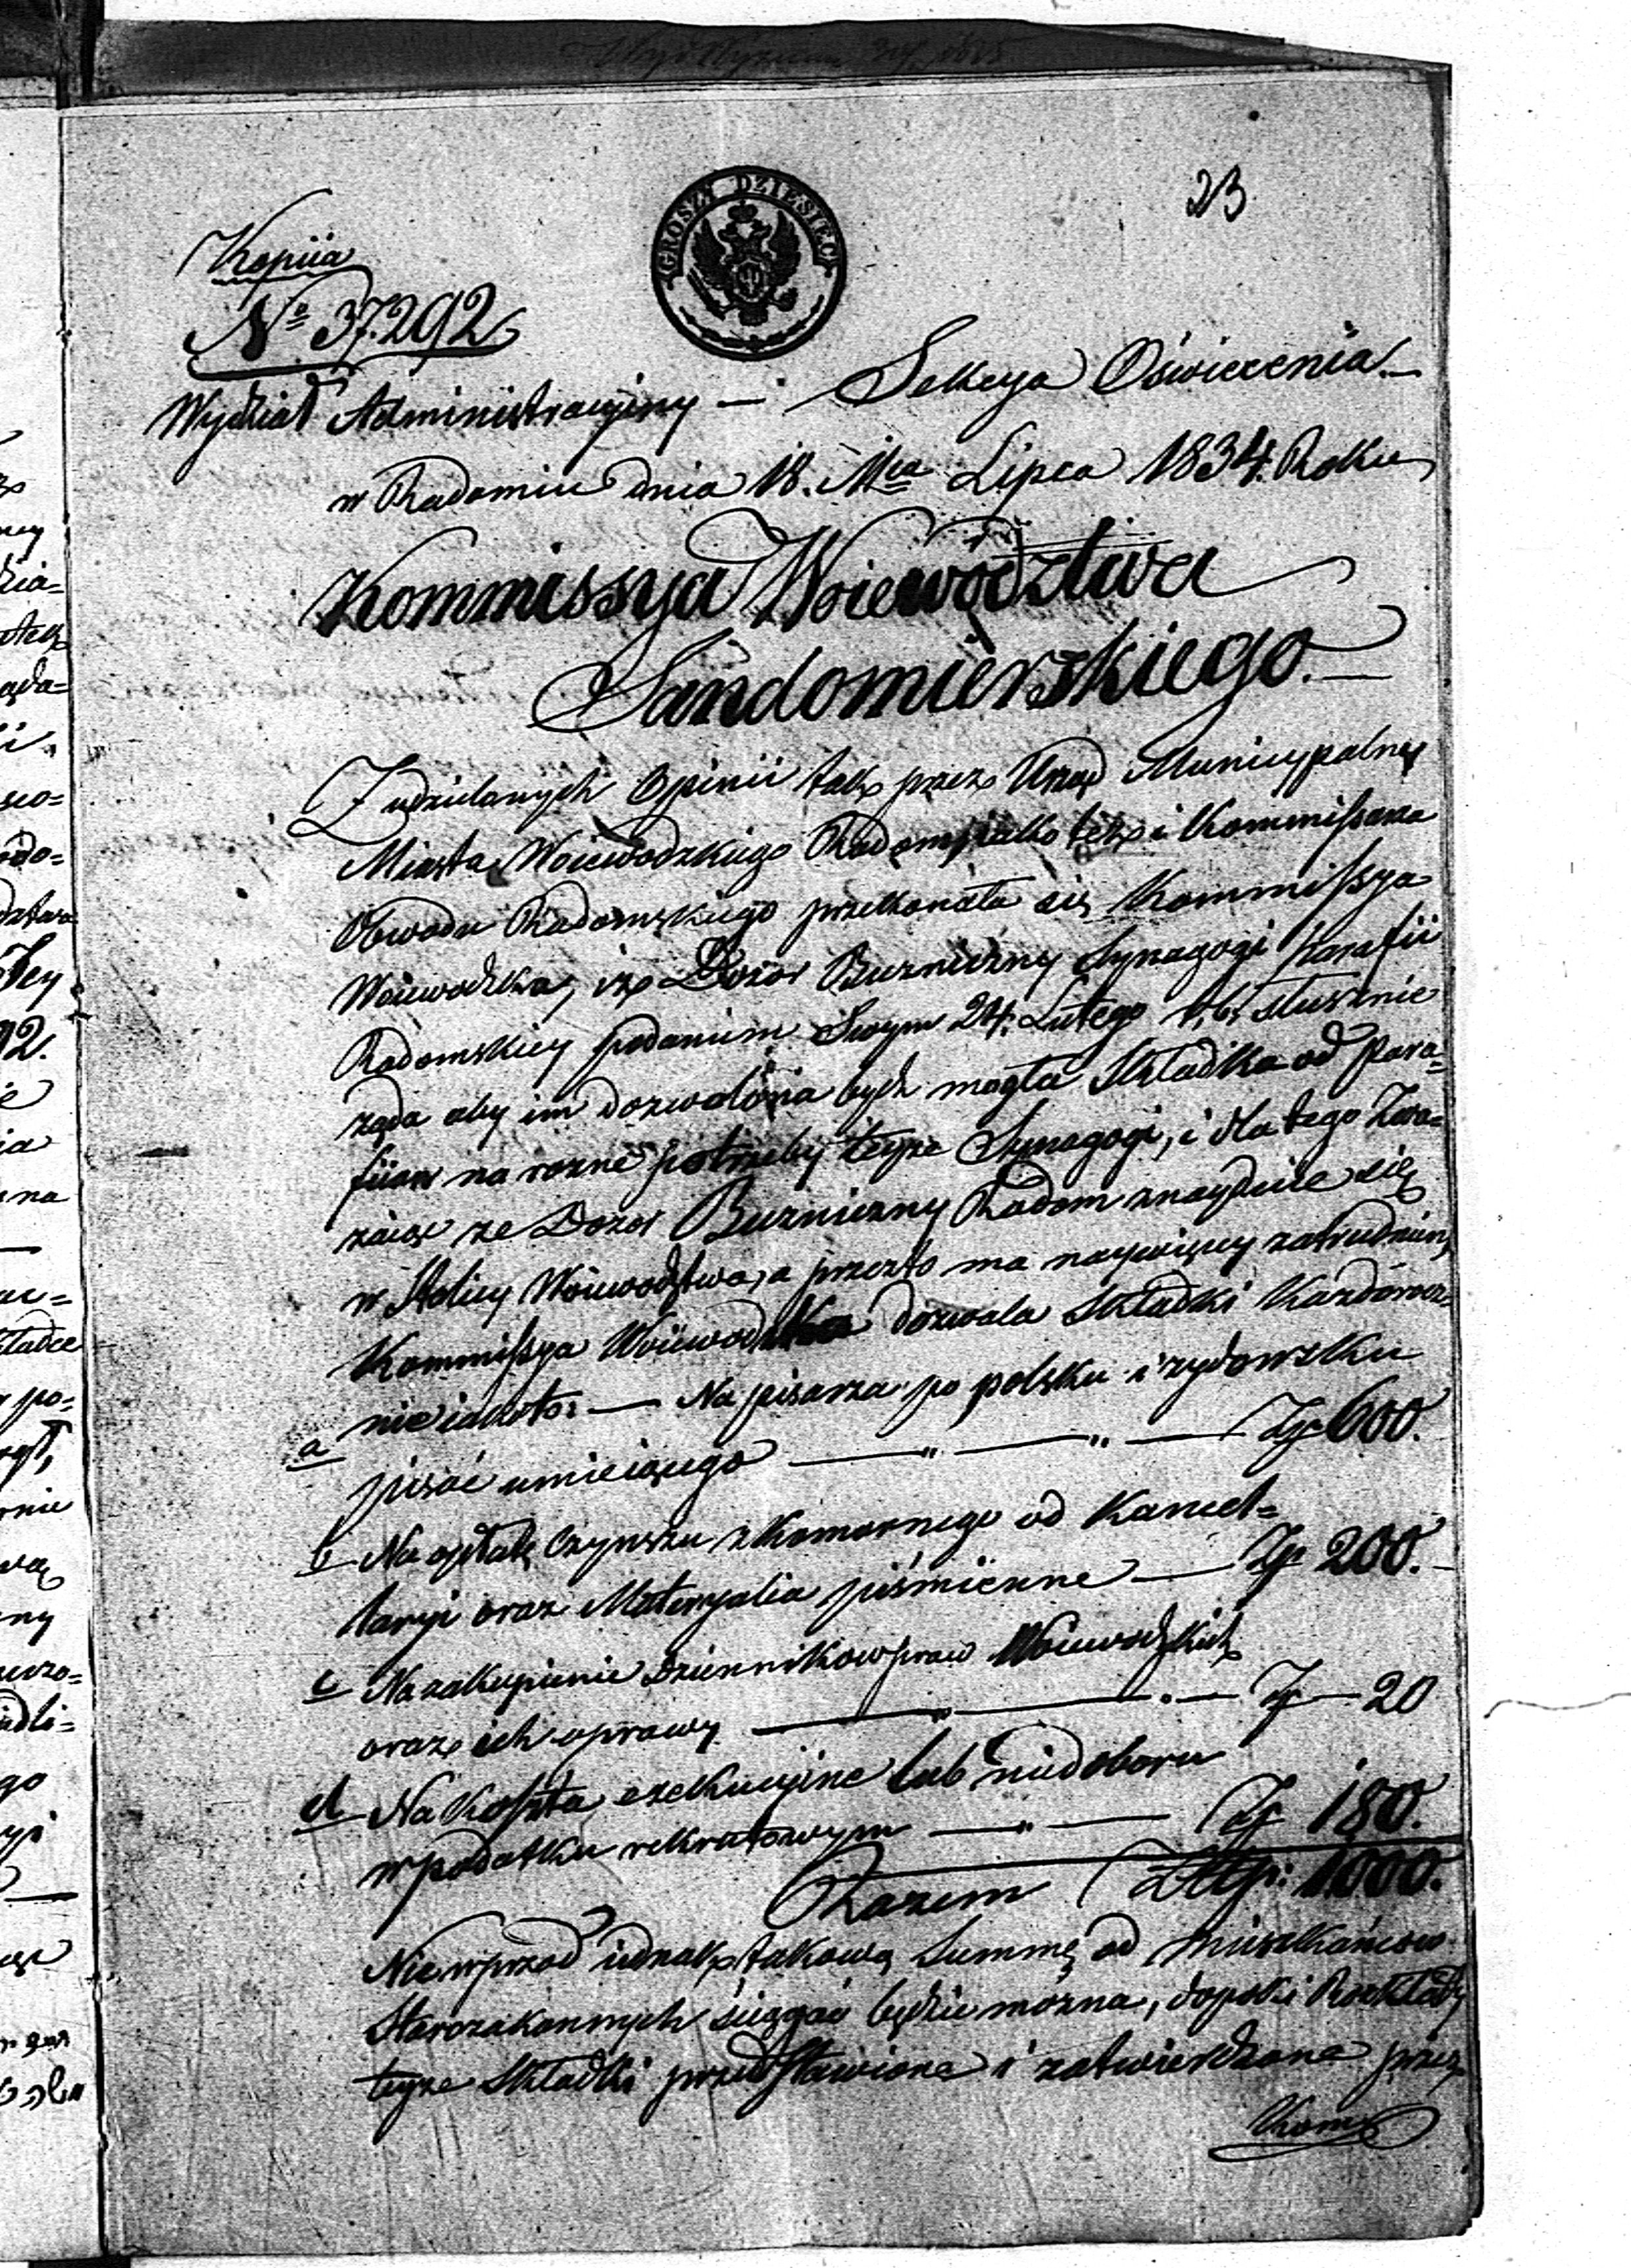 23
GROSZY DZIESIĘCI
Kopiia
No 37.292
Wydział Administracyiny — Sekcya Oświecenia. —
w Radomiu dnia 18. Mca Lipca 1834. Roku
Kommissya Woiewodztwa
Sandomierskiego. —
Z udzielanych Opinii tak przez Urząd Municypalny
Miasta Woiewodzkiego Radom iako też i Kommissarza
Obwodu Radomskiego przekonała się Kommissya
Woiewodzka, iż Dozor Bużniczny Synagogi Parafii
Radomskiey podaniem Swym 24. Lutego r. b. słusznie
ząda aby im dozwolona bydź mogła Składka od Para=
fiian na rozne potrzeby teyże Synagogi, i dla tego Zwa=
żaiąc ze Dozor Bużniczny Radom znayduie się
w Stolicy Woiewodztwa, a przezto ma naywięcey zatrudnień,
Kommissya Woiewodzka dozwala Składki Każdorocz=
nie iakoto: — Na pisarza po polsku i żydowsku
a pisać umieiącego — „ — „ — Zp 600.
b Na opłatę Czynszu z Komornego od Kancel=
laryi oraz Materyalia piśmienne — Zp 200. –
c Na zakupienie Dziennikow praw Woiewodzkich
oraz ich oprawy — „ — . — Zp — 20
d Na Koszta exekucyine lub niedoboru
w podatku rekrutowym — „ — Zp 180.
Razem Złtp: 1000.
Nie wprzod iednak takową Summę od Mieszkańcow
Starozakonnych ściągać będzie można, dopoki Rozkłady
teyże Składki przedstawione i zatwierdzone przez
Kom